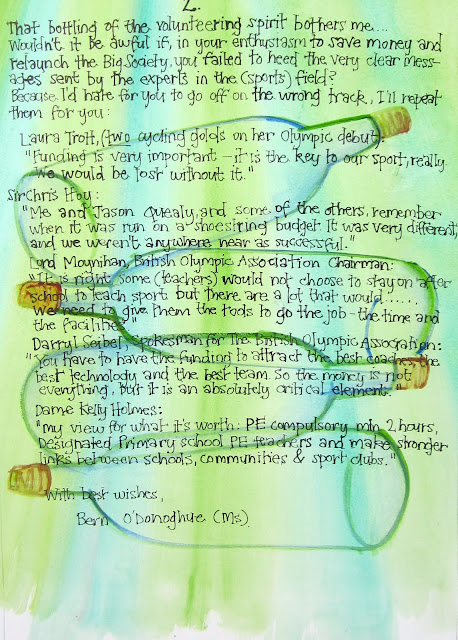 2.
That bottling of the volunteering spirit bothers me...
Wouldn't it be awful if, in your enthusiasm to save money and
relaunch the Big Society, you failed to heed the very clear mess-
ages sent by the experts in the (sports) field?
Because I'd hate for you to go off on the wrong track, I'll repeat
them for you:
Laura Trott, (two cycling golds on her Olympic debut):
"Funding is very important – it is the key to our sport, really.
We would be lost without it."
Sir Chris Hoy:
"Me and Jason Quealy, and some of the others, remember
when it was run on a shoestring budget. It was very different,
and we weren't anywhere near as successful."
Lord Moynihan, British Olympic Association Chairman:
"It is right some (teachers) would not choose to stay on after
school to teach sport but there are a lot that would......
We need to give them the tools to go the job – the time and
the facilities."
Darryl Seibel, spokesman for The British Olympic Association:
"You have to have the funding to attract the best coaches, the
best technology and the best team. So the money is not
everything, but it is an absolutely critical element."
Dame Kelly Holmes:
"my view for what it's worth: PE compulsory min 2 hours,
Designated Primary school PE teachers and make stronger
links between schools, communities & sport clubs."
With best wishes,
Bern O'Donoghue (Ms).